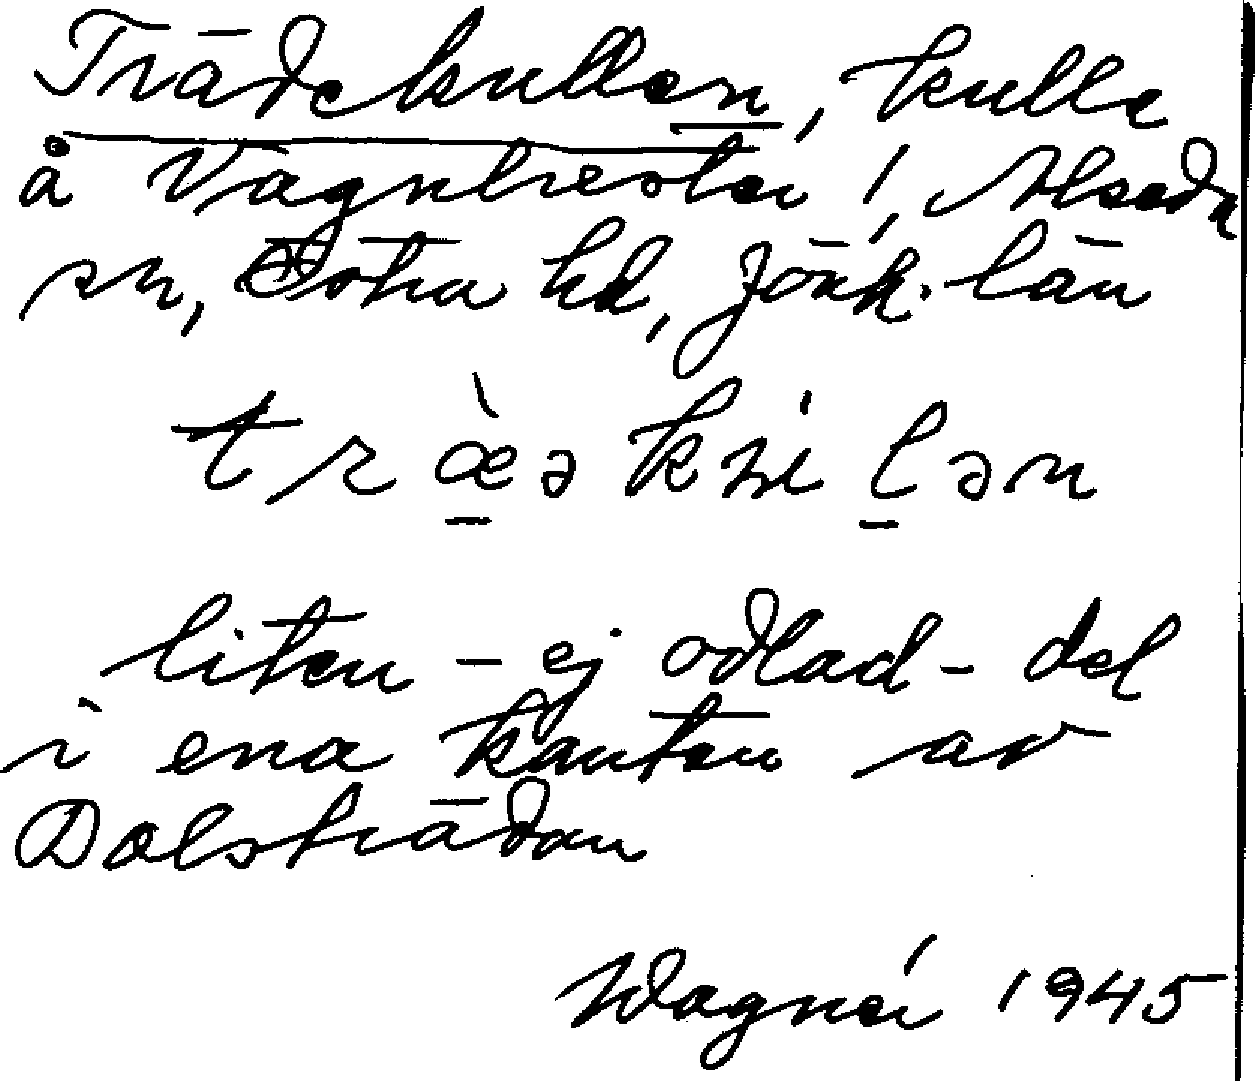 Trädekullen, kulle
å Vagnhester, Alseda
sn, Östra hd, Jönk. län
træ̀ə kɯlən
liten – ej odlad – del
i ena kanten av
Dalsträdan
Wagnér 1945